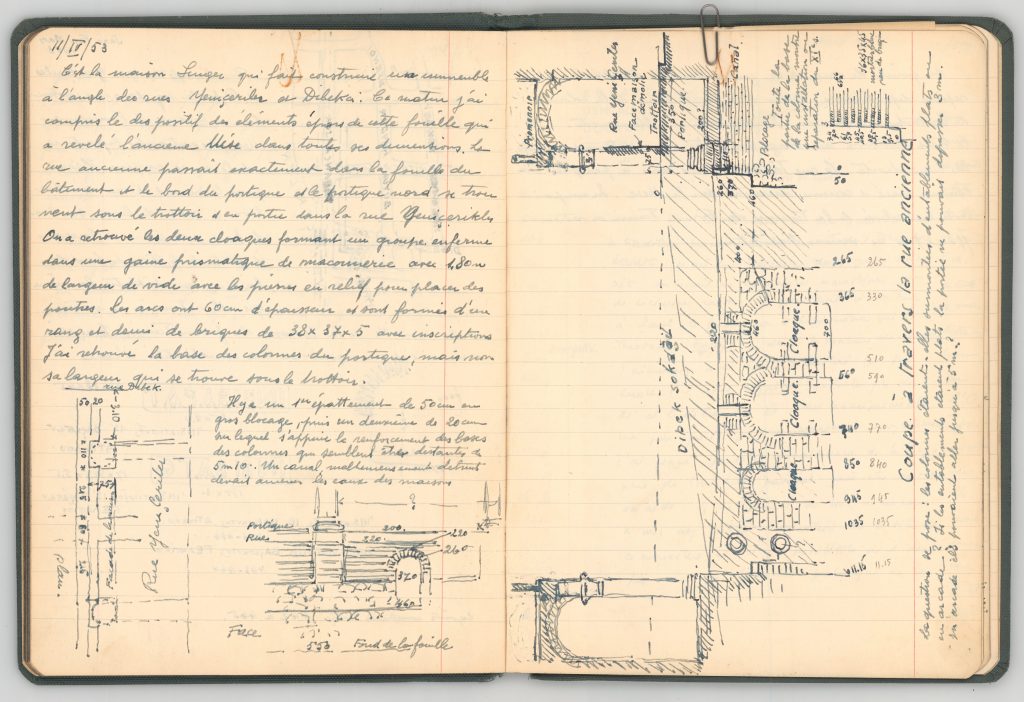 11/IV/53
C'est la maison Singer qui fait construire un immeuble
à l'angle des rues Yeniçeriler et Dibekçi. Ce matin j'ai
compris le dispositif des éléments épars de cette fouille qui
a revelé l'ancienne Mésé dans toutes ses dimensions. La
rue ancienne passait exactement dans la fouille du
bâtiment et le bord du portique et le portique nord se trou
vent sous le trottoir et en partie dans la rue Yeniçeriler
On a retrouvé les deux cloaques formant un groupe enfermé
dans une gaine prismatique de maçonnerie avec 1,80m
de largeur de vide avec les pierres en relief pour placer des
poutres. Les arcs ont 60cm d'épaisseur et sont formés d'un
rang et demi de briques de 38x37x5 avec inscriptions
J'ai retrouvé la base des colonnes du portique, mais non
sa largeur qui se trouve sous le trottoir.
Il y a un 1er épattement de 50cm en
gros blocage, puis un deuxième de 20cm
sur lequel s'appuie le renforcement des bases
des colonnes qui semblent être distantes de
5m10. Un canal malheureusement détruit
devait amener les eaux des maisons
rue Dibek.
50 20
Rue Yeniceriler
plan.
?
Portique
Rues
200
220
220
260
370
460
Face
550
Fond de la fouille
Promenoir
Rue Yeniçeriler
Face maison
démolie
Trottoir
Portique
Canal
Blocage
toute la
partie de la base
de la colonne montre
une réfection ou
réparation du XIe s.
36x35x45
mortier blanc
peu de brique
0
50
Dibek sokagi
220
460
460
700
Cloaque
Cloaque
Cloaque
265 265
365 330
510
560 590
740 770
850 840
945 945
1035 1035
11.15 11.15
Coupe à travers la rue ancienne
La question se pose: les colonnes étaient-elles surmontées d'entablements plats ou
en arcade? Si les entablements étaient plats la portée ne pouvait dépasser 3m.
en arcade ils pouvaient aller jusqu'à 5m?